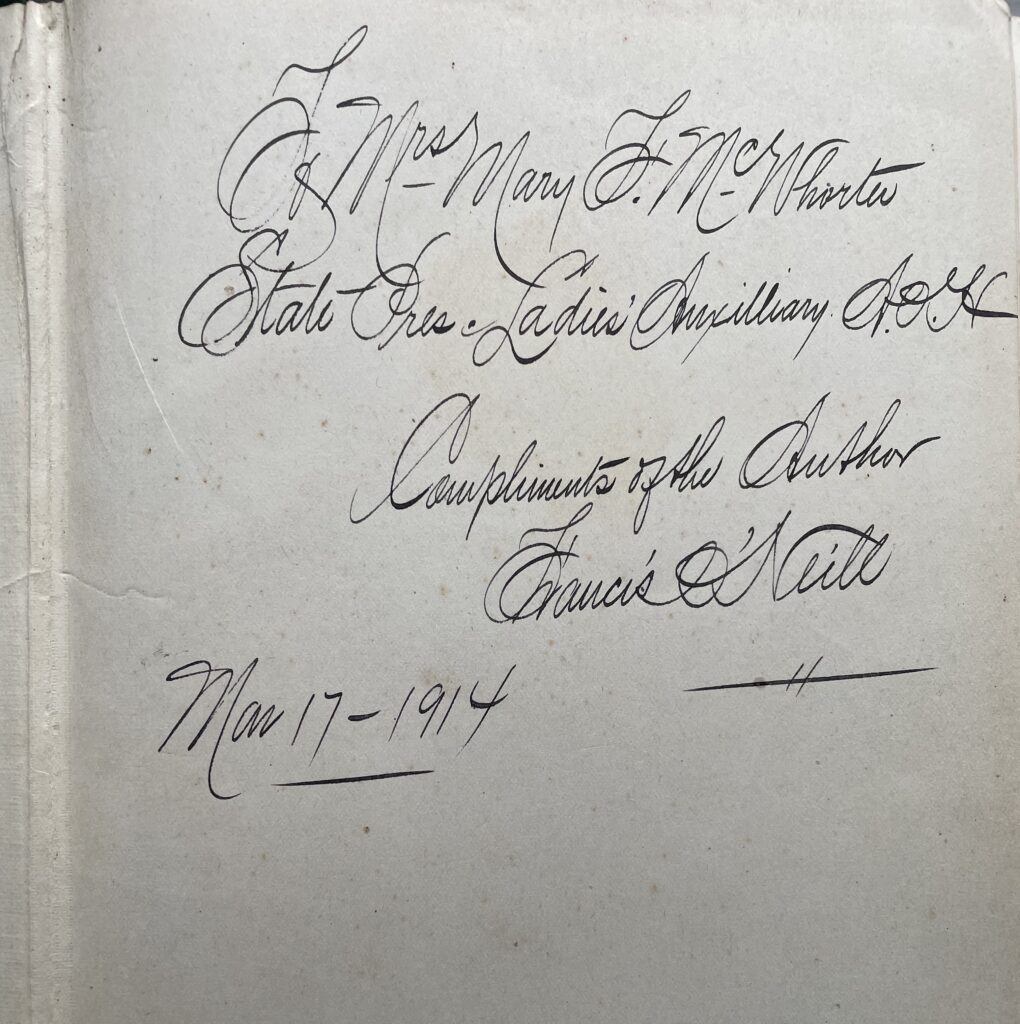 To Mrs Mary F. McWhorter
State Pres. Ladies' Auxilliary A.O.H
Compliments of the Author
Francis O'Neill
Mar 17 - 1914